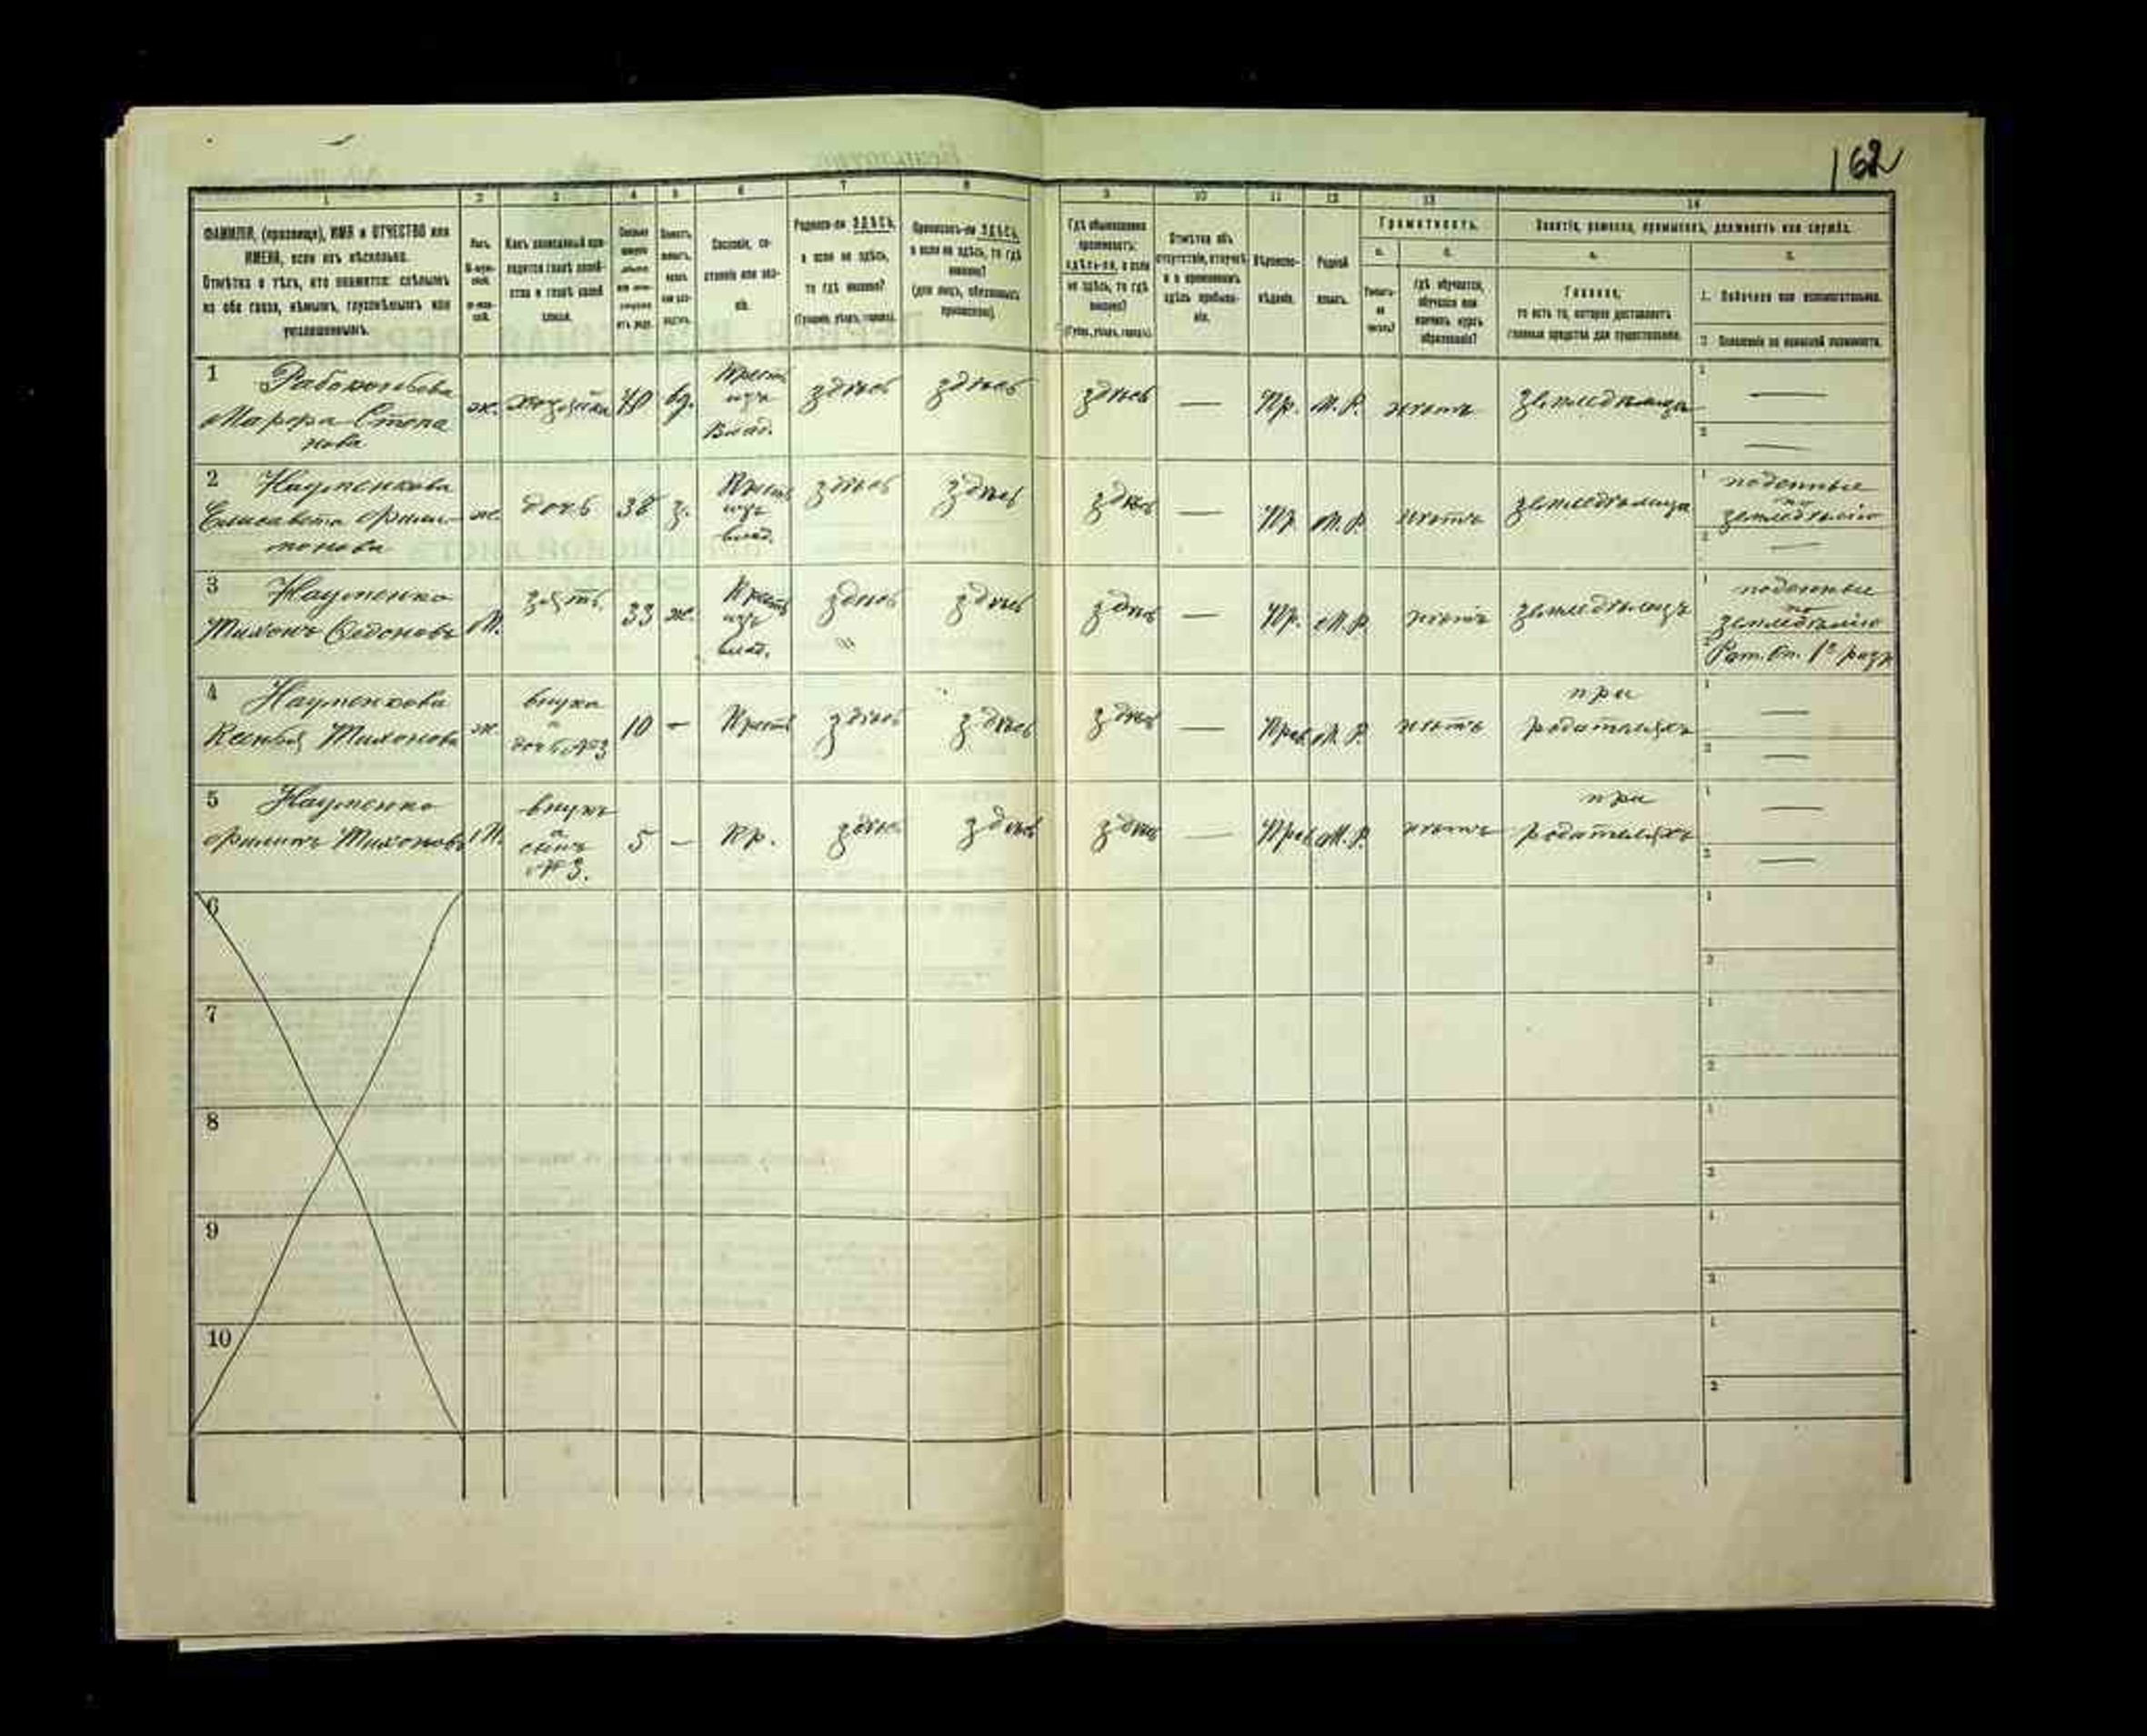 162
1 2 3 4 5 6 7 8 9 10 11 12 13 14
ФАМИЛІЯ, (прозвище), ИМЯ и ОТЧЕСТВО или
ИМЕНА, если ихъ нѣсколько.
Отмѣтка о тѣхъ, кто окажется: слѣпымъ
на оба глаза, нѣмымъ, глухонѣмымъ или
умалишеннымъ.
Полъ.
Какъ записанный при-
ходится главѣ хозяй-
ства и главѣ своей
семьи.
Сословіе, со-
стояніе или зва-
ніе.
Родился-ли ЗДѢСЬ,
а если не здѣсь,
то гдѣ именно?
(Губернія, уѣздъ, городъ).
Приписанъ-ли ЗДѢСЬ,
а если не здѣсь, то гдѣ
именно?
(для лицъ, обязанныхъ
припискою).
Гдѣ обыкновенно
проживаетъ:
здѣсь-ли, а если
не здѣсь, то гдѣ
именно?
(Губ., уѣздъ, городъ).
Отмѣтка объ
отсутствіи, отлучкѣ
и о временномъ
здѣсь пребыва-
ніи.
Вѣроиспо-
вѣданіе.
Родной
языкъ.
Грамотность.
а.
Умѣетъ-
ли
читать?
б.
Гдѣ обучается,
обучался или
кончилъ курсъ
образованія?
Занятія, ремесло, промыселъ, должность или служба.
а.
Главное,
то есть то, которое доставляетъ
главныя средства для существованія.
б.
1. Побочное или вспомогательное.
2. Положеніе по воинской повинности.
1 Рабоконьова
Марфа Степа
нова
ж. хозяйка 40 вд.
Крест
изъ
Влад.
здѣсь здѣсь здѣсь — Пр. М. Р. нѣтъ землѣдѣлица
1 —
2 —
2 Науменкова
Елисавета Фили-
монова
ж. дочь 38 з.
Крест
изъ
влад.
здѣсь здѣсь здѣсь — Пр. М. Р. нѣтъ земледѣлица
1 поденные
по
земледѣлію
2 —
3 Науменко
Тихонъ Федоновъ
М. зять 33 ж.
Крест
изъ
влад.
здѣсь здѣсь здѣсь — Пр. М. Р. нѣтъ земледѣлецъ
1 поденные
по
земледѣлію
2 Рат. Оп. 1го разр
4 Науменкова
Ксенья Тихонова
ж.
внука
и
дочь №3
10 — Крест здѣсь здѣсь здѣсь — Прав. М. Р. нѣтъ
при
родителяхъ
1 —
2 —
5 Науменко
Филипъ Тихоновъ
М.
внукъ
и
сынъ
№ 3.
5 — Кр. здѣсь здѣсь здѣсь — Прав. М. Р. нѣтъ
при
родителяхъ
1 —
2 —
6 1
2
7 1
2
8 1
2
9 1
2
10 1
2